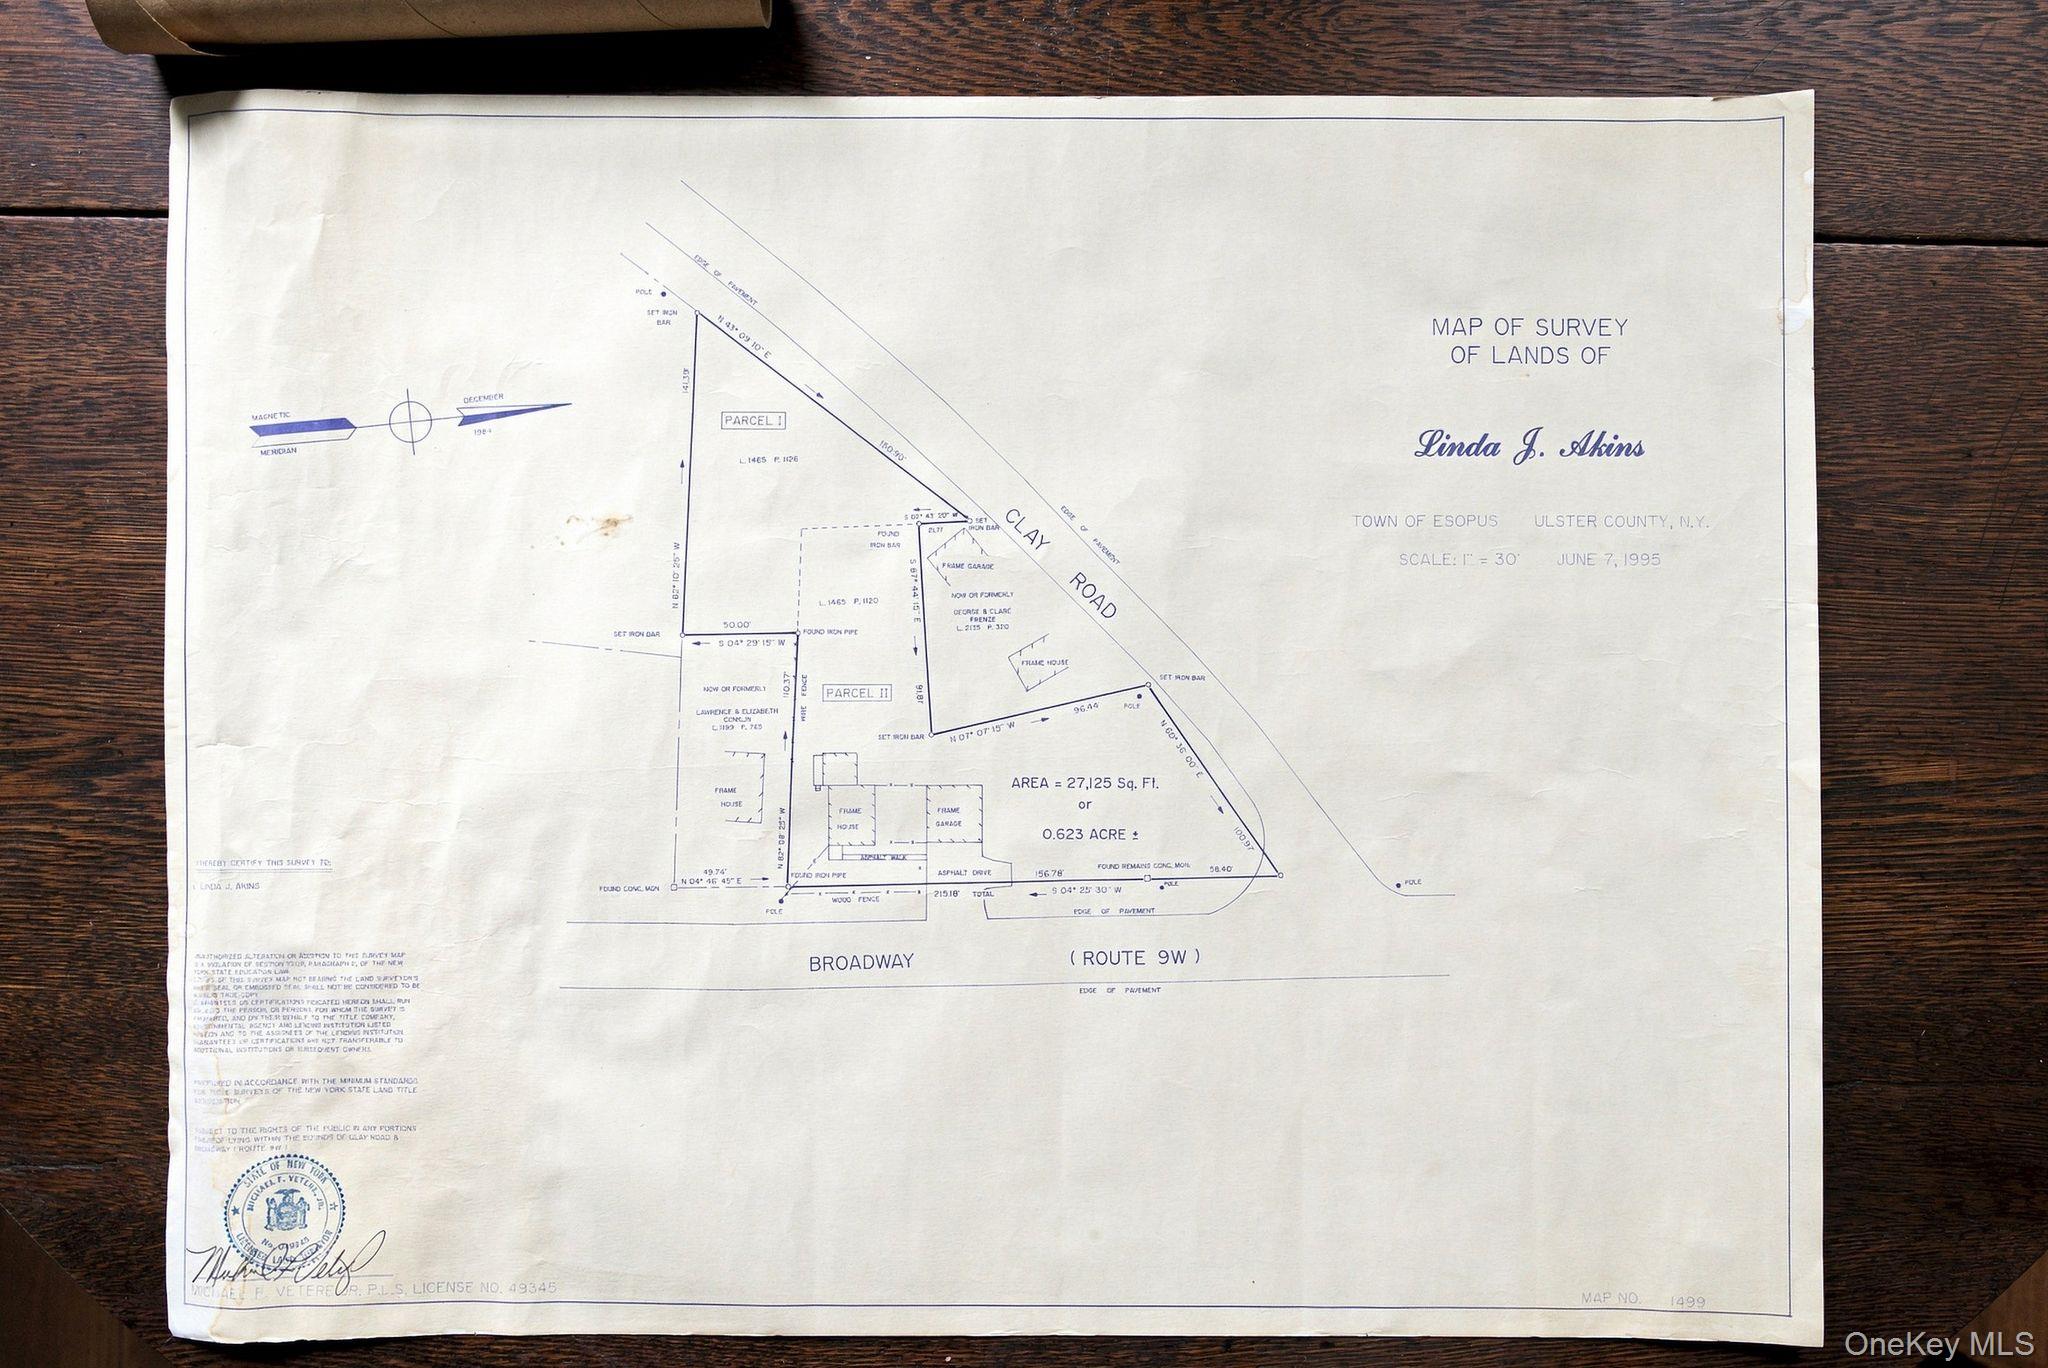 MAP OF SURVEY
OF LANDS OF
Linda J. Akins
TOWN OF ESOPUS ULSTER COUNTY, N.Y.
SCALE: 1" = 30' JUNE 7, 1995
EDGE OF PAVEMENT
POLE
SET IRON
BAR
N 43° 09' 10" E
141.39'
MAGNETIC
MERIDIAN
DECEMBER
1984
PARCEL I
L. 1465 P. 1126
160.90'
CLAY ROAD
EDGE OF PAVEMENT
S 02° 43' 20" W
21.77
SET
IRON BAR
FOUND
IRON BAR
FRAME GARAGE
N 82° 10' 25" W
S 87° 44' 15" E
NOW OR FORMERLY
GEORGE & CLARE
FRENZE
L. 1465 P. 1120
50.00'
SET IRON BAR
S 04° 29' 15" W
FOUND IRON PIPE
FRAME HOUSE
SET IRON BAR
POLE
110.37'
WIRE FENCE
PARCEL II
91.81'
96.44
NOW OR FORMERLY
LAWRENCE & ELIZABETH
CONKLIN
L. 1199 P. 765
SET IRON BAR
N 07° 07' 15" W
N 60° 36' 00" E
AREA = 27,125 Sq. Ft.
or
0.623 ACRE ±
FRAME
HOUSE
FRAME
HOUSE
FRAME
GARAGE
N 82° 08' 25" W
100.97
ASPHALT WALK
ASPHALT DRIVE
FOUND REMAINS CONC. MON.
49.74'
N 04° 46' 45" E
FOUND IRON PIPE
156.78'
58.40'
FOUND CONC. MON.
S 04° 25' 30" W
POLE
POLE
WOOD FENCE
215.18' TOTAL
POLE
EDGE OF PAVEMENT
BROADWAY ( ROUTE 9W )
EDGE OF PAVEMENT
HEREBY CERTIFY THIS SURVEY TO:
LINDA J. AKINS
ALTERATION OR ADDITION TO THIS SURVEY MAP
VIOLATION OF SECTION PARAGRAPH 2, OF THE NEW
YORK STATE EDUCATION LAW.
OF THIS SURVEY MAP NOT BEARING THE LAND SURVEYOR'S
SEAL OR EMBOSSED SEAL SHALL NOT BE CONSIDERED TO BE
TRUE COPY.
OR CERTIFICATIONS INDICATED HEREON SHALL RUN
THE PERSON, OR PERSONS, FOR WHOM THE SURVEY IS
AND ON THEIR BEHALF TO THE TITLE COMPANY,
AGENCY AND LENDING INSTITUTION LISTED
AND TO THE ASSIGNEES OF THE LENDING INSTITUTION.
OR CERTIFICATIONS ARE NOT TRANSFERABLE TO
INSTITUTIONS OR SUBSEQUENT OWNERS.
IN ACCORDANCE WITH THE MINIMUM STANDARDS
SURVEYS OF THE NEW YORK STATE LAND TITLE
TO THE RIGHTS OF THE PUBLIC IN ANY PORTIONS
LYING WITHIN THE BOUNDS OF CLAY ROAD &
BROADWAY ( ROUTE 9W )
STATE OF NEW YORK
MICHAEL F. VETERE, JR.
LICENSED LAND SURVEYOR
MICHAEL F. VETERE JR. P.L.S. LICENSE NO. 49345
MAP NO. 1499
OneKey MLS